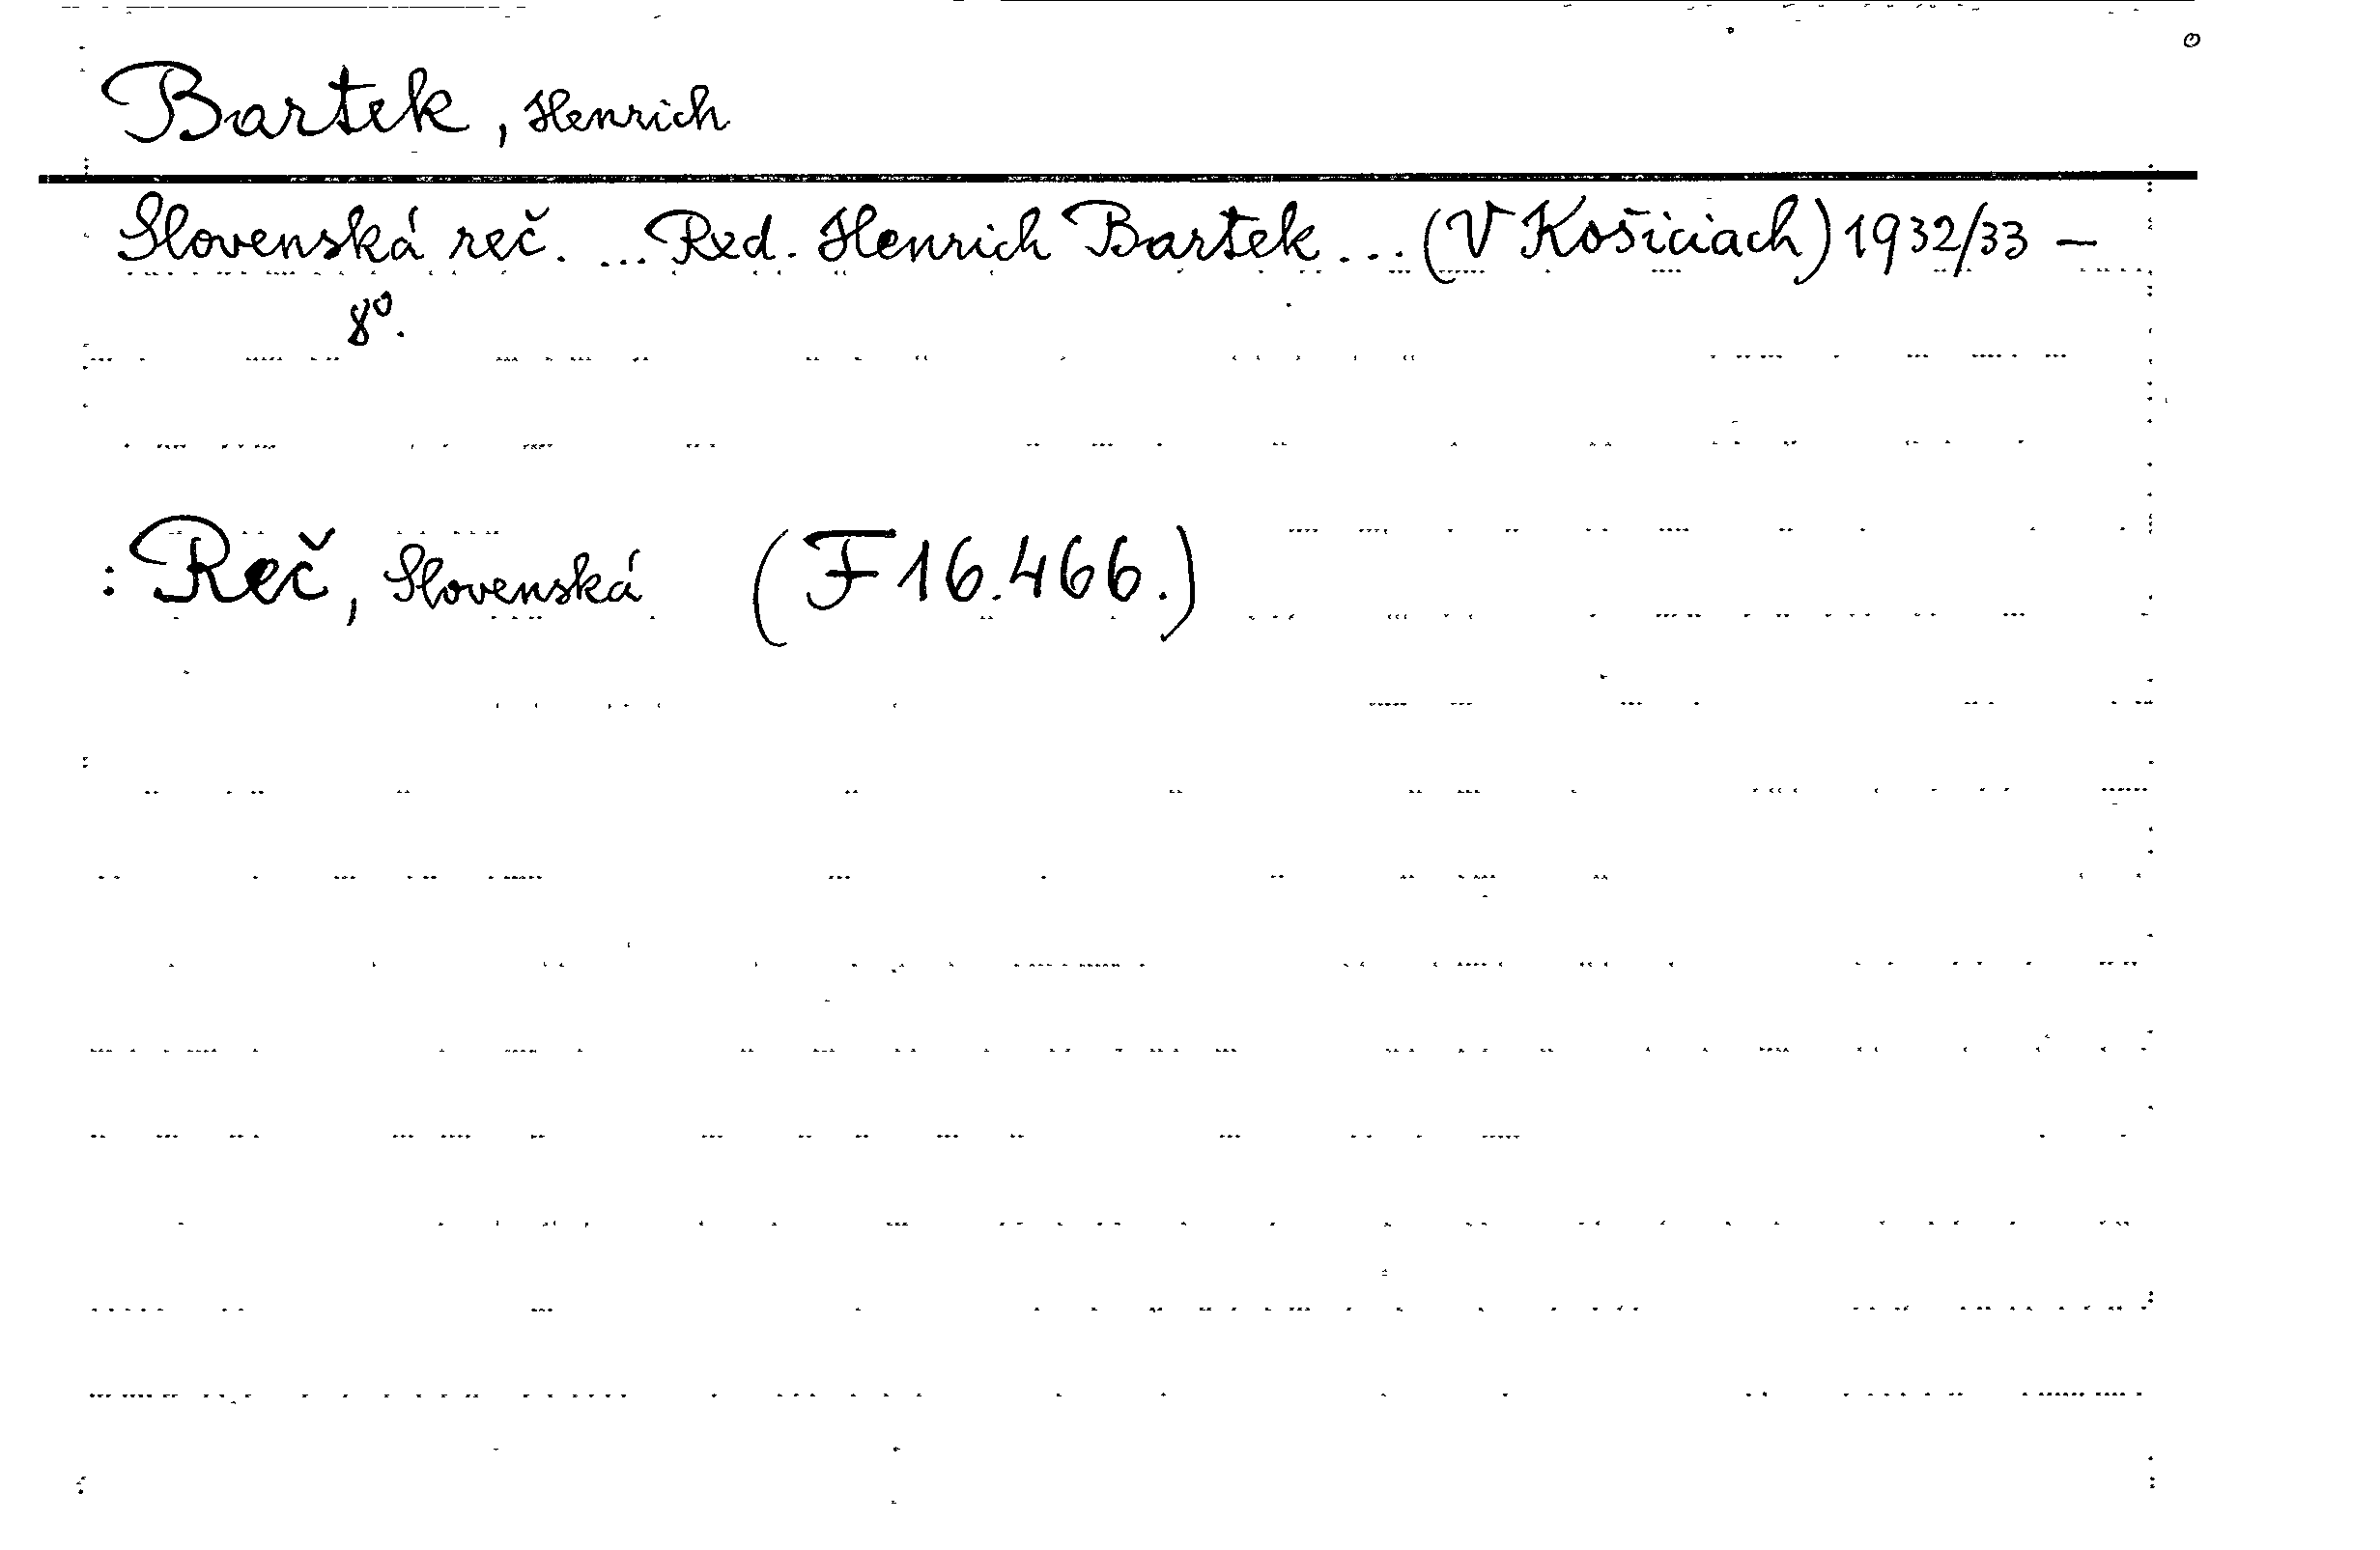 Bartek, Henrich
Slovenská reč. ... Red. Henrich Bartek ... (V Košiciach) 1932/33 —
8°.
: Reč, Slovenská (F 16.466.)